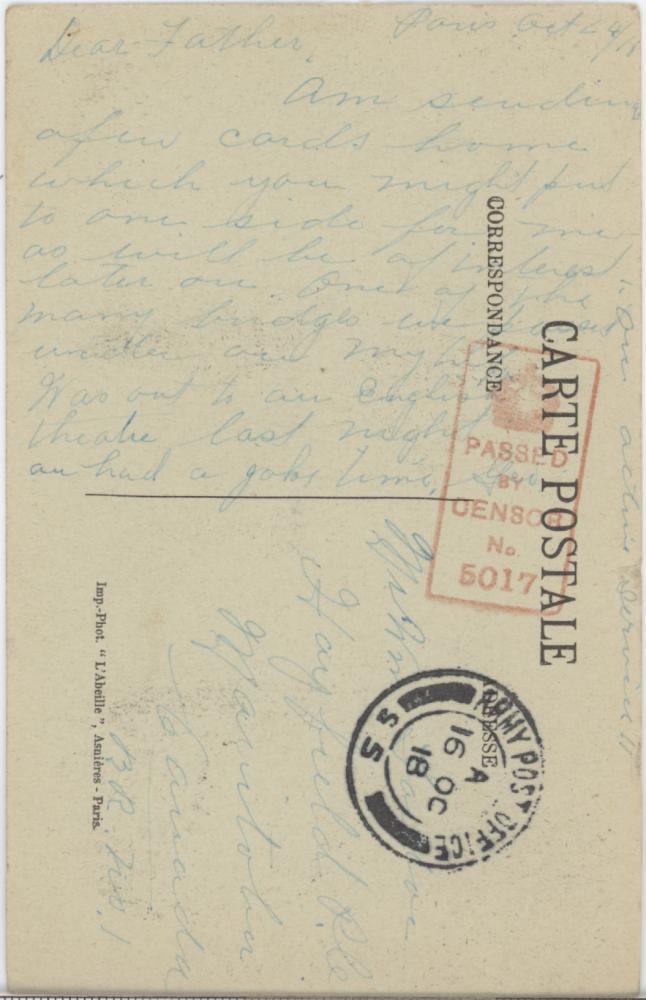 Paris Oct 4/18
Dear Father,
Am sending
a few cards home
which you might put
to one side for me
as will be of interest
later on One of the
many bridges we passed
under on
Was out to an English
theatre last night
an had a time,
"On active Service"
CARTE POSTALE
CORRESPONDANCE
PASSED
BY
CENSOR
No.
5017
ARMY POST OFFICE
A
16 OC
18
S 5
Hayfield P.O.
Manitoba
Canada
Imp.-Phot. " L'Abeille ", Asnières - Paris.